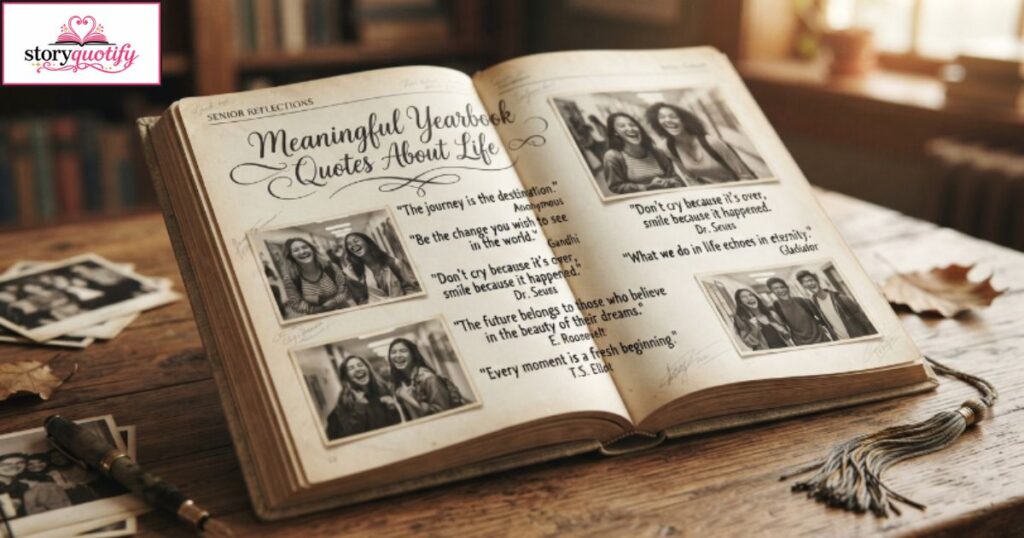 storyquotify
SENIOR REFLECTIONS
Meaningful Yearbook
Quotes About Life
"The journey is the destination."
Anonymous
"Be the change you wish to see
in the world."
Gandhi
"Don't cry because it's over,
smile because it happened."
Dr. Seus
"The future belongs to those who believe
in the beauty of their dreams."
E. Roosevelt
"Every moment is a fresh beginning."
T.S. Eliot
"Don't cry because it's over,
smile because it happened.
Dr. Seus
"What we do in life echoes in eternity."
Gladiator